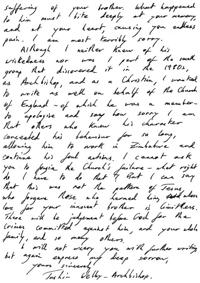 suffering of your brother. What happened
to him must bite deeply at your memory,
and at your heart, causing you endless
pain. I am most terribly sorry.
Although I neither knew of his
wickedness nor was I part of the small
group that discovered it in the 1980s,
as Archbishop, and as a Christian, I wanted
to write as well on behalf of the Church
of England - of which he was a member -
to apologise and say how sorry I am
that others who knew his character
concealed his behaviour for so long,
allowing him to work in Zimbabwe and
continue his foul actions. I cannot ask
you to forgive the Church's failure - what right
do I have to do that? But I can say
that this was not the pattern of Jesus,
who forgave those who harmed him, and whose
love for your innocent brother is limitless.
There will be judgement before God for the
crimes committed against him, and your whole
family, and so many others.
I will not weary you with further writing
but again express my deep sorrow,
yours sincerely
Justin Welby - Archbishop.